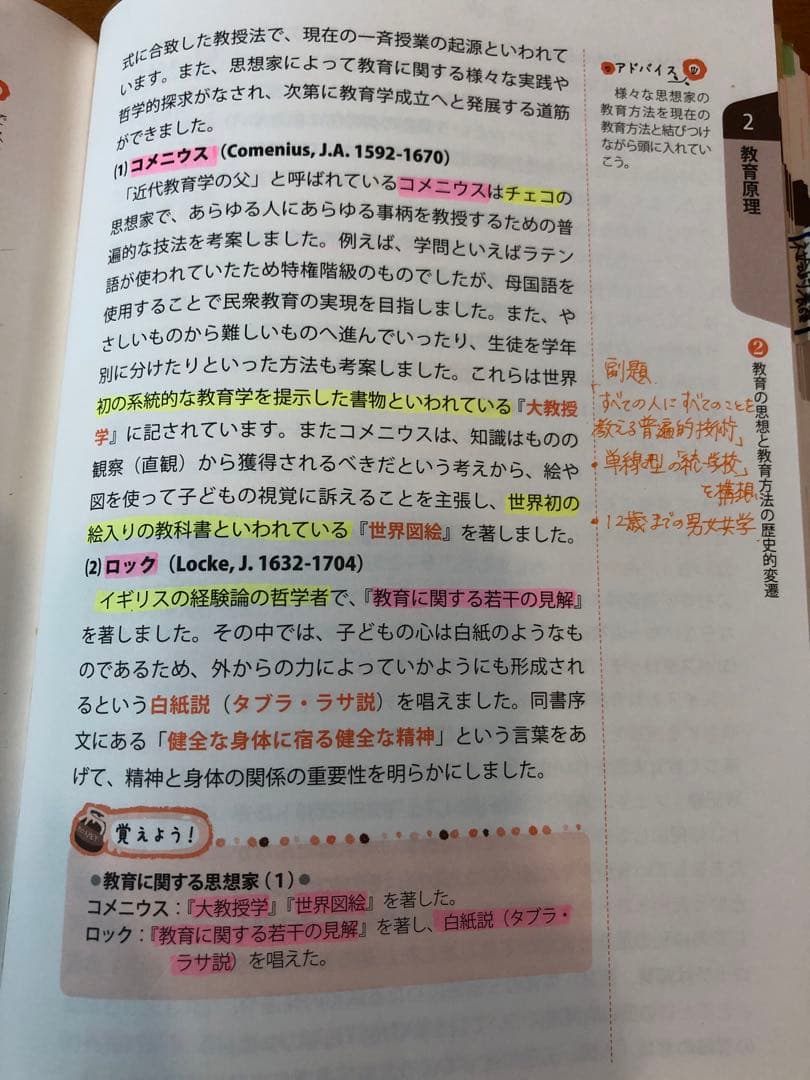 式に合致した教授法で、現在の一斉授業の起源といわれて
います。また、思想家によって教育に関する様々な実践や
哲学的探求がなされ、次第に教育学成立へと発展する道筋
ができました。
(1) コメニウス (Comenius, J.A. 1592-1670)
「近代教育学の父」と呼ばれているコメニウスはチェコの
思想家で、あらゆる人にあらゆる事柄を教授するための普
遍的な技法を考案しました。例えば、学問といえばラテン
語が使われていたため特権階級のものでしたが、母国語を
使用することで民衆教育の実現を目指しました。また、や
さしいものから難しいものへ進んでいったり、生徒を学年
別に分けたりといった方法も考案しました。これらは世界
初の系統的な教育学を提示した書物といわれている『大教授
学』に記されています。またコメニウスは、知識はものの
観察（直観）から獲得されるべきだという考えから、絵や
図を使って子どもの視覚に訴えることを主張し、世界初の
絵入りの教科書といわれている『世界図絵』を著しました。
(2) ロック (Locke, J. 1632-1704)
イギリスの経験論の哲学者で、『教育に関する若干の見解』
を著しました。その中では、子どもの心は白紙のようなも
のであるため、外からの力によっていかようにも形成され
るという白紙説（タブラ・ラサ説）を唱えました。同書序
文にある「健全な身体に宿る健全な精神」という言葉をあ
げて、精神と身体の関係の重要性を明らかにしました。
覚えよう！
●教育に関する思想家（1）●
コメニウス：『大教授学』『世界図絵』を著した。
ロック：『教育に関する若干の見解』を著し、白紙説（タブラ・
ラサ説）を唱えた。
アドバイス
様々な思想家の
教育方法を現在の
教育方法と結びつけ
ながら頭に入れてい
こう。
2
教育原理
2 教育の思想と教育方法の歴史的変遷
副題
「すべての人にすべてのことを
教える普遍的技術」
・単線型の「統一学校」
を構想
・12歳までの男女共学